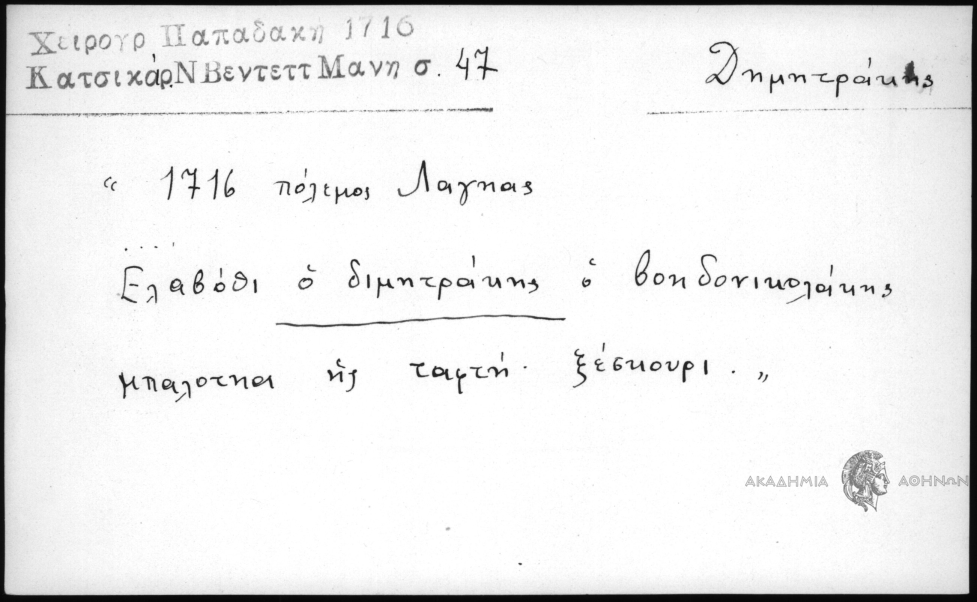 Χειρογρ Παπαδακη 1716
Κατσικάρ. Ν Βεντεττ Μανη σ. 47
Δημητράκης
“ 1716 πόλεμος Λαγηας
Ελαβόθι ὁ διμητράκης ὁ βοηδονικολάκης
μπαλοτηαι ἠς ταφτή· ξέσκουρι . „
ΑΚΑΔΗΜΙΑ ΑΘΗΝΩΝ